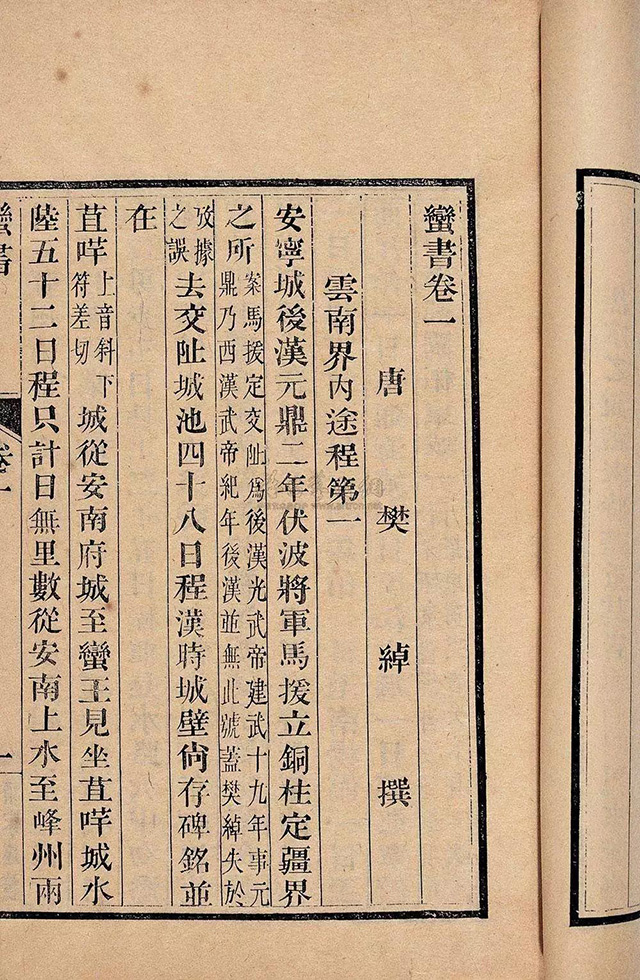 蠻書卷一
唐 樊 綽 撰
雲南界內途程第一
安寧城後漢元鼎二年伏波將軍馬援立銅柱定疆界
之所案馬援定交阯爲後漢光武帝建武十九年事元
鼎乃西漢武帝紀年後漢並無此號蓋樊綽失於
攷據
之誤去交阯城池四十八日程漢時城壁尙存碑銘並
在
苴咩上音斜下
符差切城從安南府城至蠻王見坐苴咩城水
陸五十二日程只計日無里數從安南上水至峰州兩
蠻書
卷一
一